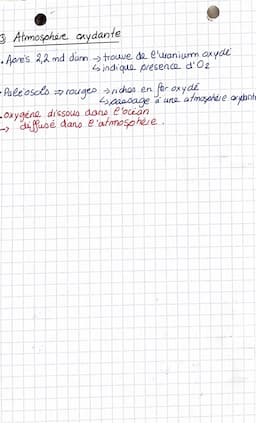 ③ Atmosphère oxydante
. Après 2,2 md d'ann → trouve de l'uranium oxydé
↳ indique présence d'O2
. Paléosols ⇒ rouges → riches en fer oxydé
↳ passage à une atmosphère oxydante
. oxygène dissous dans l'océan
→ diffusé dans l'atmosphère.